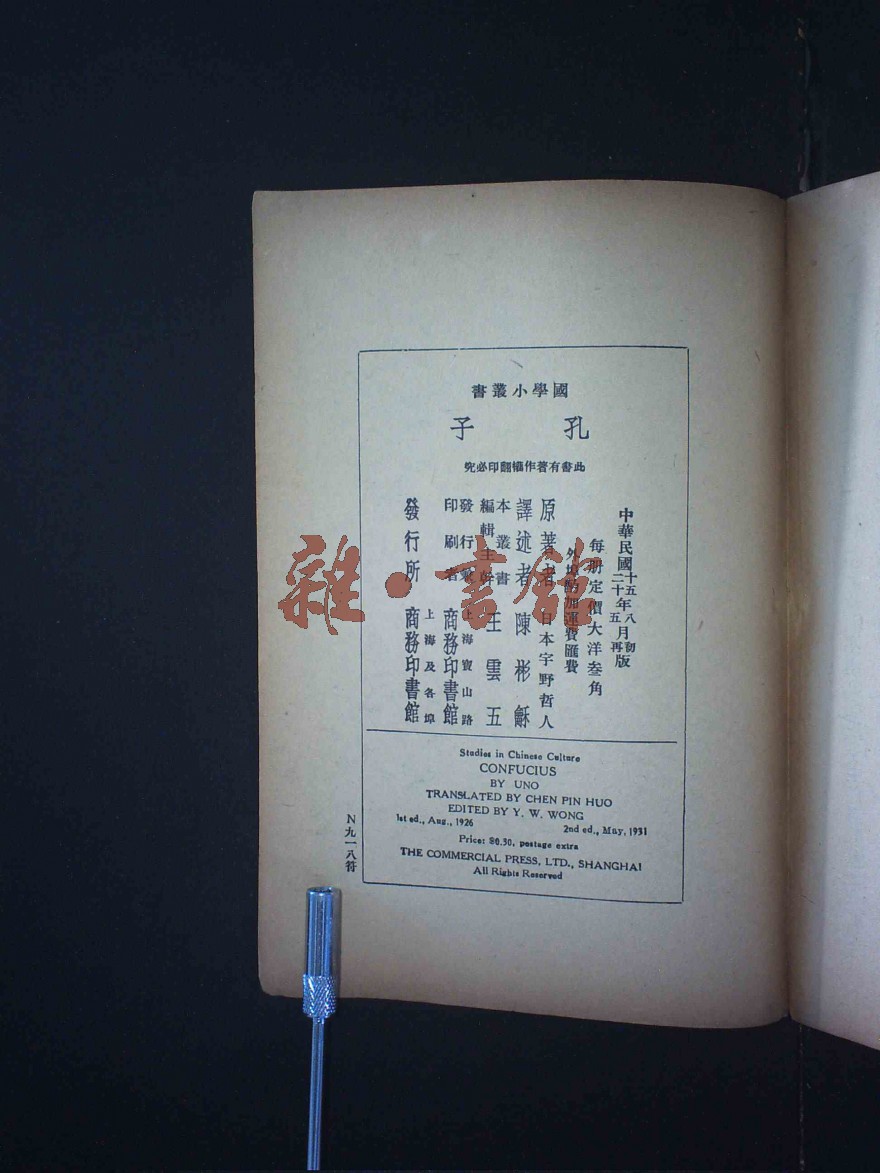 國學小叢書
孔子
此書有著作權翻印必究
中華民國十五年八月初版
二十年五月再版
每册定價大洋叁角
外埠酌加運費匯費
原著者 日本宇野哲人
譯述者 陳彬龢
本叢書編輯主幹 王雲五
發行兼印刷者 上海寶山路 商務印書館
發行所 上海及各埠 商務印書館
Studies in Chinese Culture
CONFUCIUS
BY UNO
TRANSLATED BY CHEN PIN HUO
EDITED BY Y. W. WONG
1st ed., Aug., 1926 2nd ed., May, 1931
Price: $0.30, postage extra
THE COMMERCIAL PRESS, LTD., SHANGHAI
All Rights Reserved
N九一八符
雜·書館